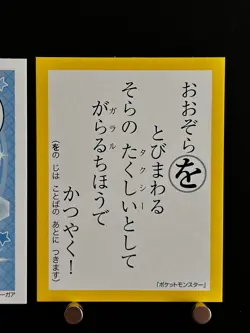 おおぞらを
とびまわる
そらの たくしいとして
タクシー
がらるちほうで
ガラル
かつやく!
(をの じは ことばの あとに つきます)
『ポケットモンスター』
ーガア